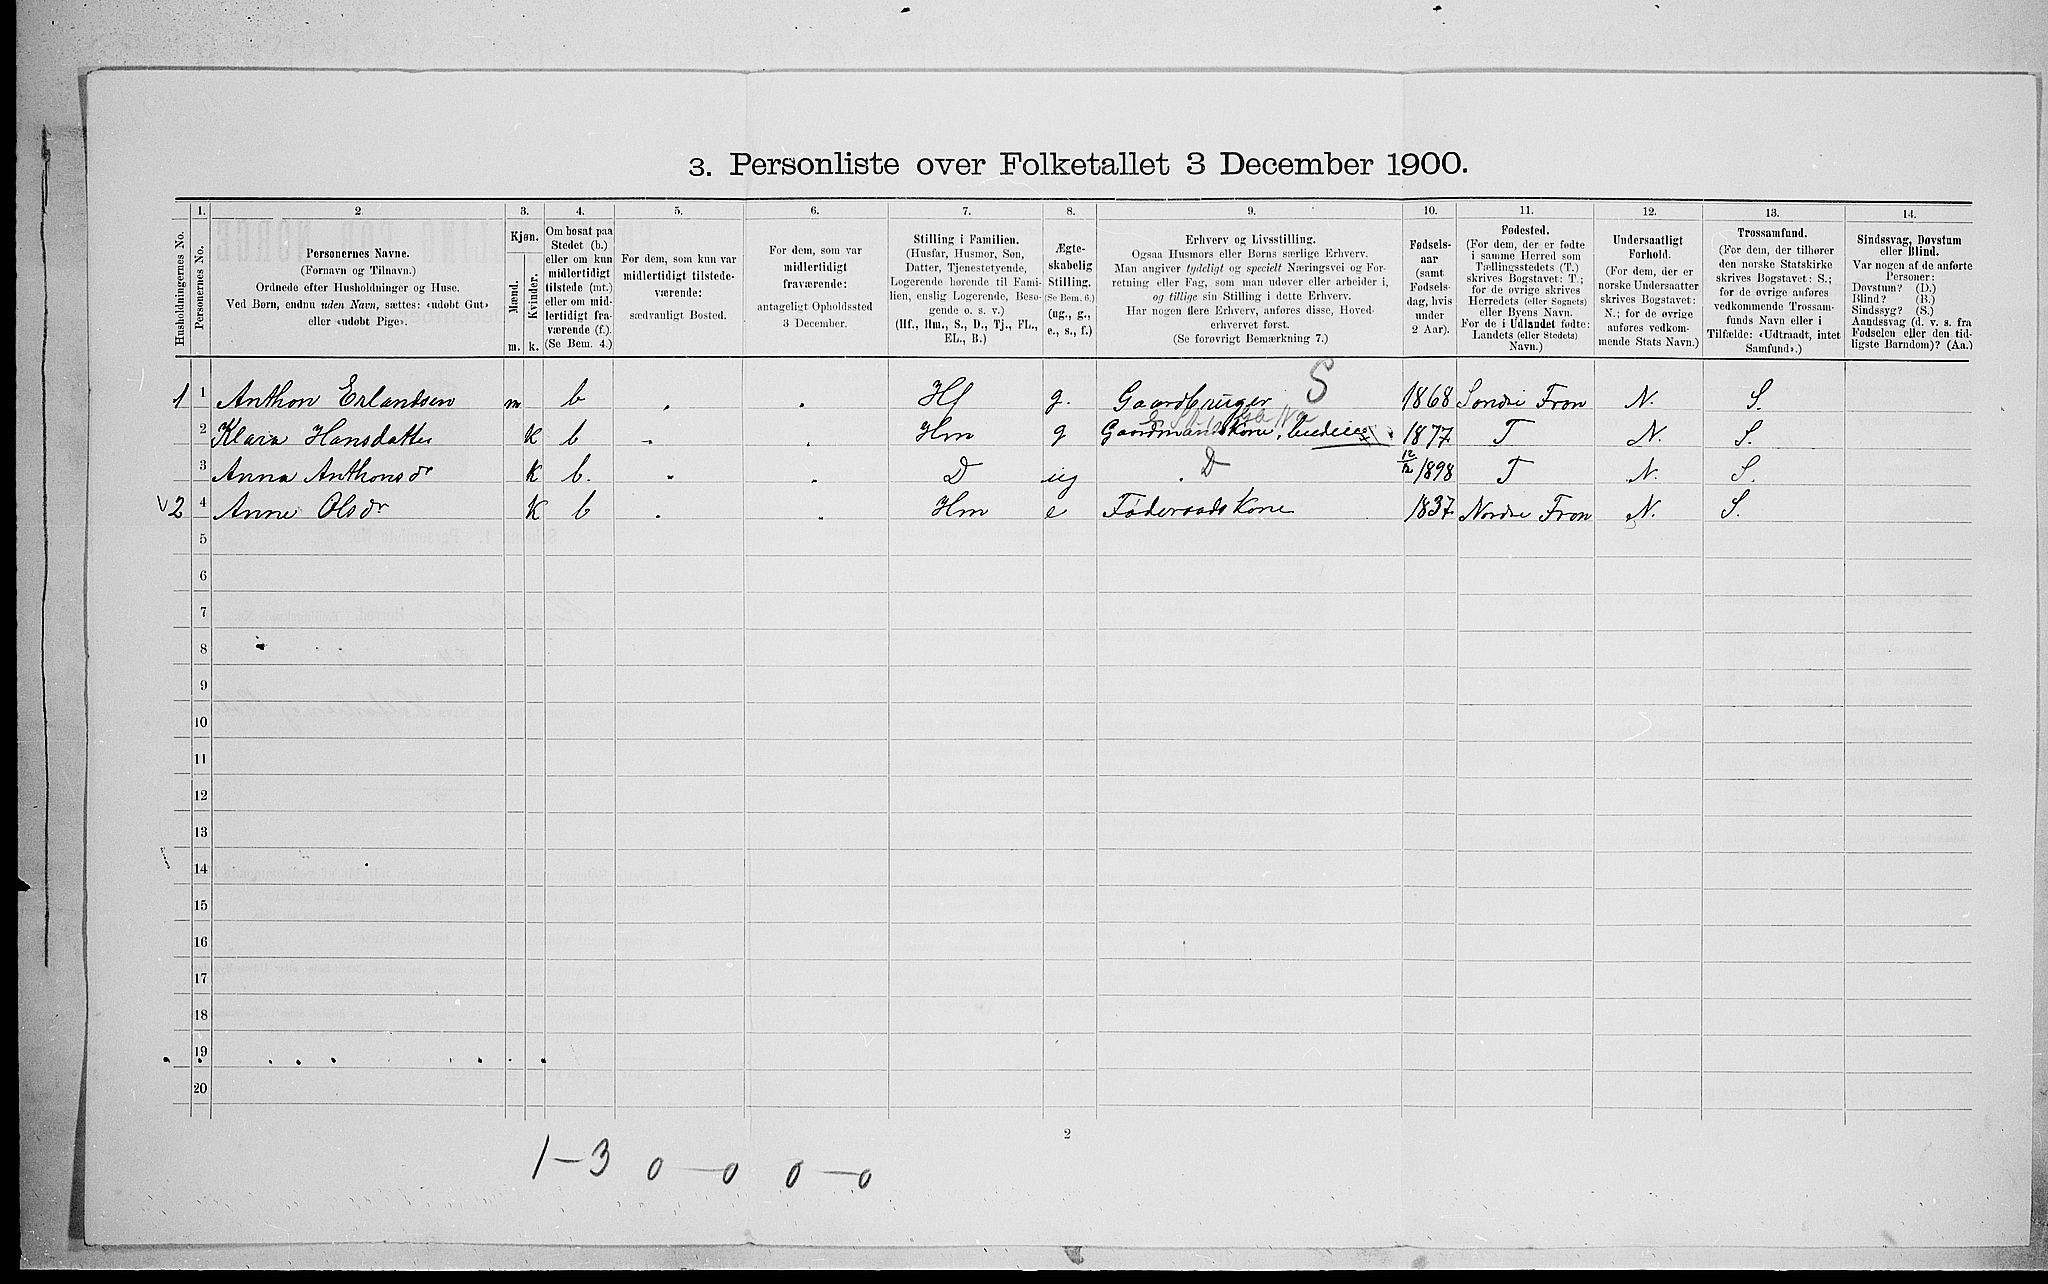 3. Personliste over Folketallet 3 December 1900.
1. 2. 3. 4. 5. 6. 7. 8. 9. 10. 11. 12. 13. 14.
Husholdningernes No.
Personernes No.
Personernes Navne.
(Fornavn og Tilnavn.)
Ordnede efter Husholdninger og Huse.
Ved Børn, endnu uden Navn, sættes: «udøbt Gut»
eller «udøbt Pige».
Kjøn.
Mænd.
Kvinder.
m. k.
Om bosat paa
Stedet (b.)
eller om kun
midlertidigt
tilstede (mt.)
eller om mid-
lertidigt fra-
værende (f.).
(Se Bem. 4.)
For dem, som kun var
midlertidigt tilstede-
værende:
sædvanligt Bosted.
For dem, som var
midlertidigt
fraværende:
antageligt Opholdssted
3 December.
Stilling i Familien.
(Husfar, Husmor, Søn,
Datter, Tjenestetyende,
Logerende hørende til Fami-
lien, enslig Logerende, Besø-
gende o. s. v.)
(Hf., Hm., S., D., Tj., FL.,
EL., B.)
Ægte-
skabelig
Stilling.
(Se Bem. 6.)
(ug., g.,
e., s., f.)
Erhverv og Livsstilling.
Ogsaa Husmors eller Børns særlige Erhverv.
Man angiver tydeligt og specielt Næringsvei og For-
retning eller Fag, som man udøver eller arbeider i,
og tillige sin Stilling i dette Erhverv.
Har nogen flere Erhverv, anføres disse, Hoved-
erhvervet først.
(Se forøvrigt Bemærkning 7.)
Fødsels-
aar
(samt
Fødsels-
dag, hvis
under
2 Aar).
Fødested.
(For dem, der er fødte
i samme Herred som
Tællingsstedets (T.)
skrives Bogstavet: T.;
for de øvrige skrives
Herredets (eller Sognets)
eller Byens Navn.
For de i Udlandet fødte:
Landets (eller Stedets)
Navn.)
Undersaatligt
Forhold.
(For dem, der er
norske Undersaatter
skrives Bogstavet:
N.; for de øvrige
anføres vedkom-
mende Stats Navn.)
Trossamfund.
(For dem, der tilhører
den norske Statskirke
skrives Bogstavet: S.;
for de øvrige anføres
vedkommende Trossam-
funds Navn eller i
Tilfælde: «Udtraadt, intet
Samfund».)
Sindssvag, Døvstum
eller Blind.
Var nogen af de anførte
Personer:
Døvstum? (D.)
Blind? (B.)
Sindssyg? (S.)
Aandssvag (d. v. s. fra
Fødselen eller den tid-
ligste Barndom)? (Aa.)
S
1 1 Anthon Erlandsen m b Hf g. Gaardbruger 1868 Søndre Fron N. S.
2 Klara Hansdatter K b Hm g Gaardmandskone, 1877 T N. S.
3 Anna Anthonsdr K b. D ug D 12/12 1898 T N. S.
2 4 Anne Olsdr K b Hm e Føderaadskone 1837 Nordre Fron N. S.
5
6
7
8
9
10
11
12
13
14
15
16
17
18
19
20
2
1-3 0-0 0-0